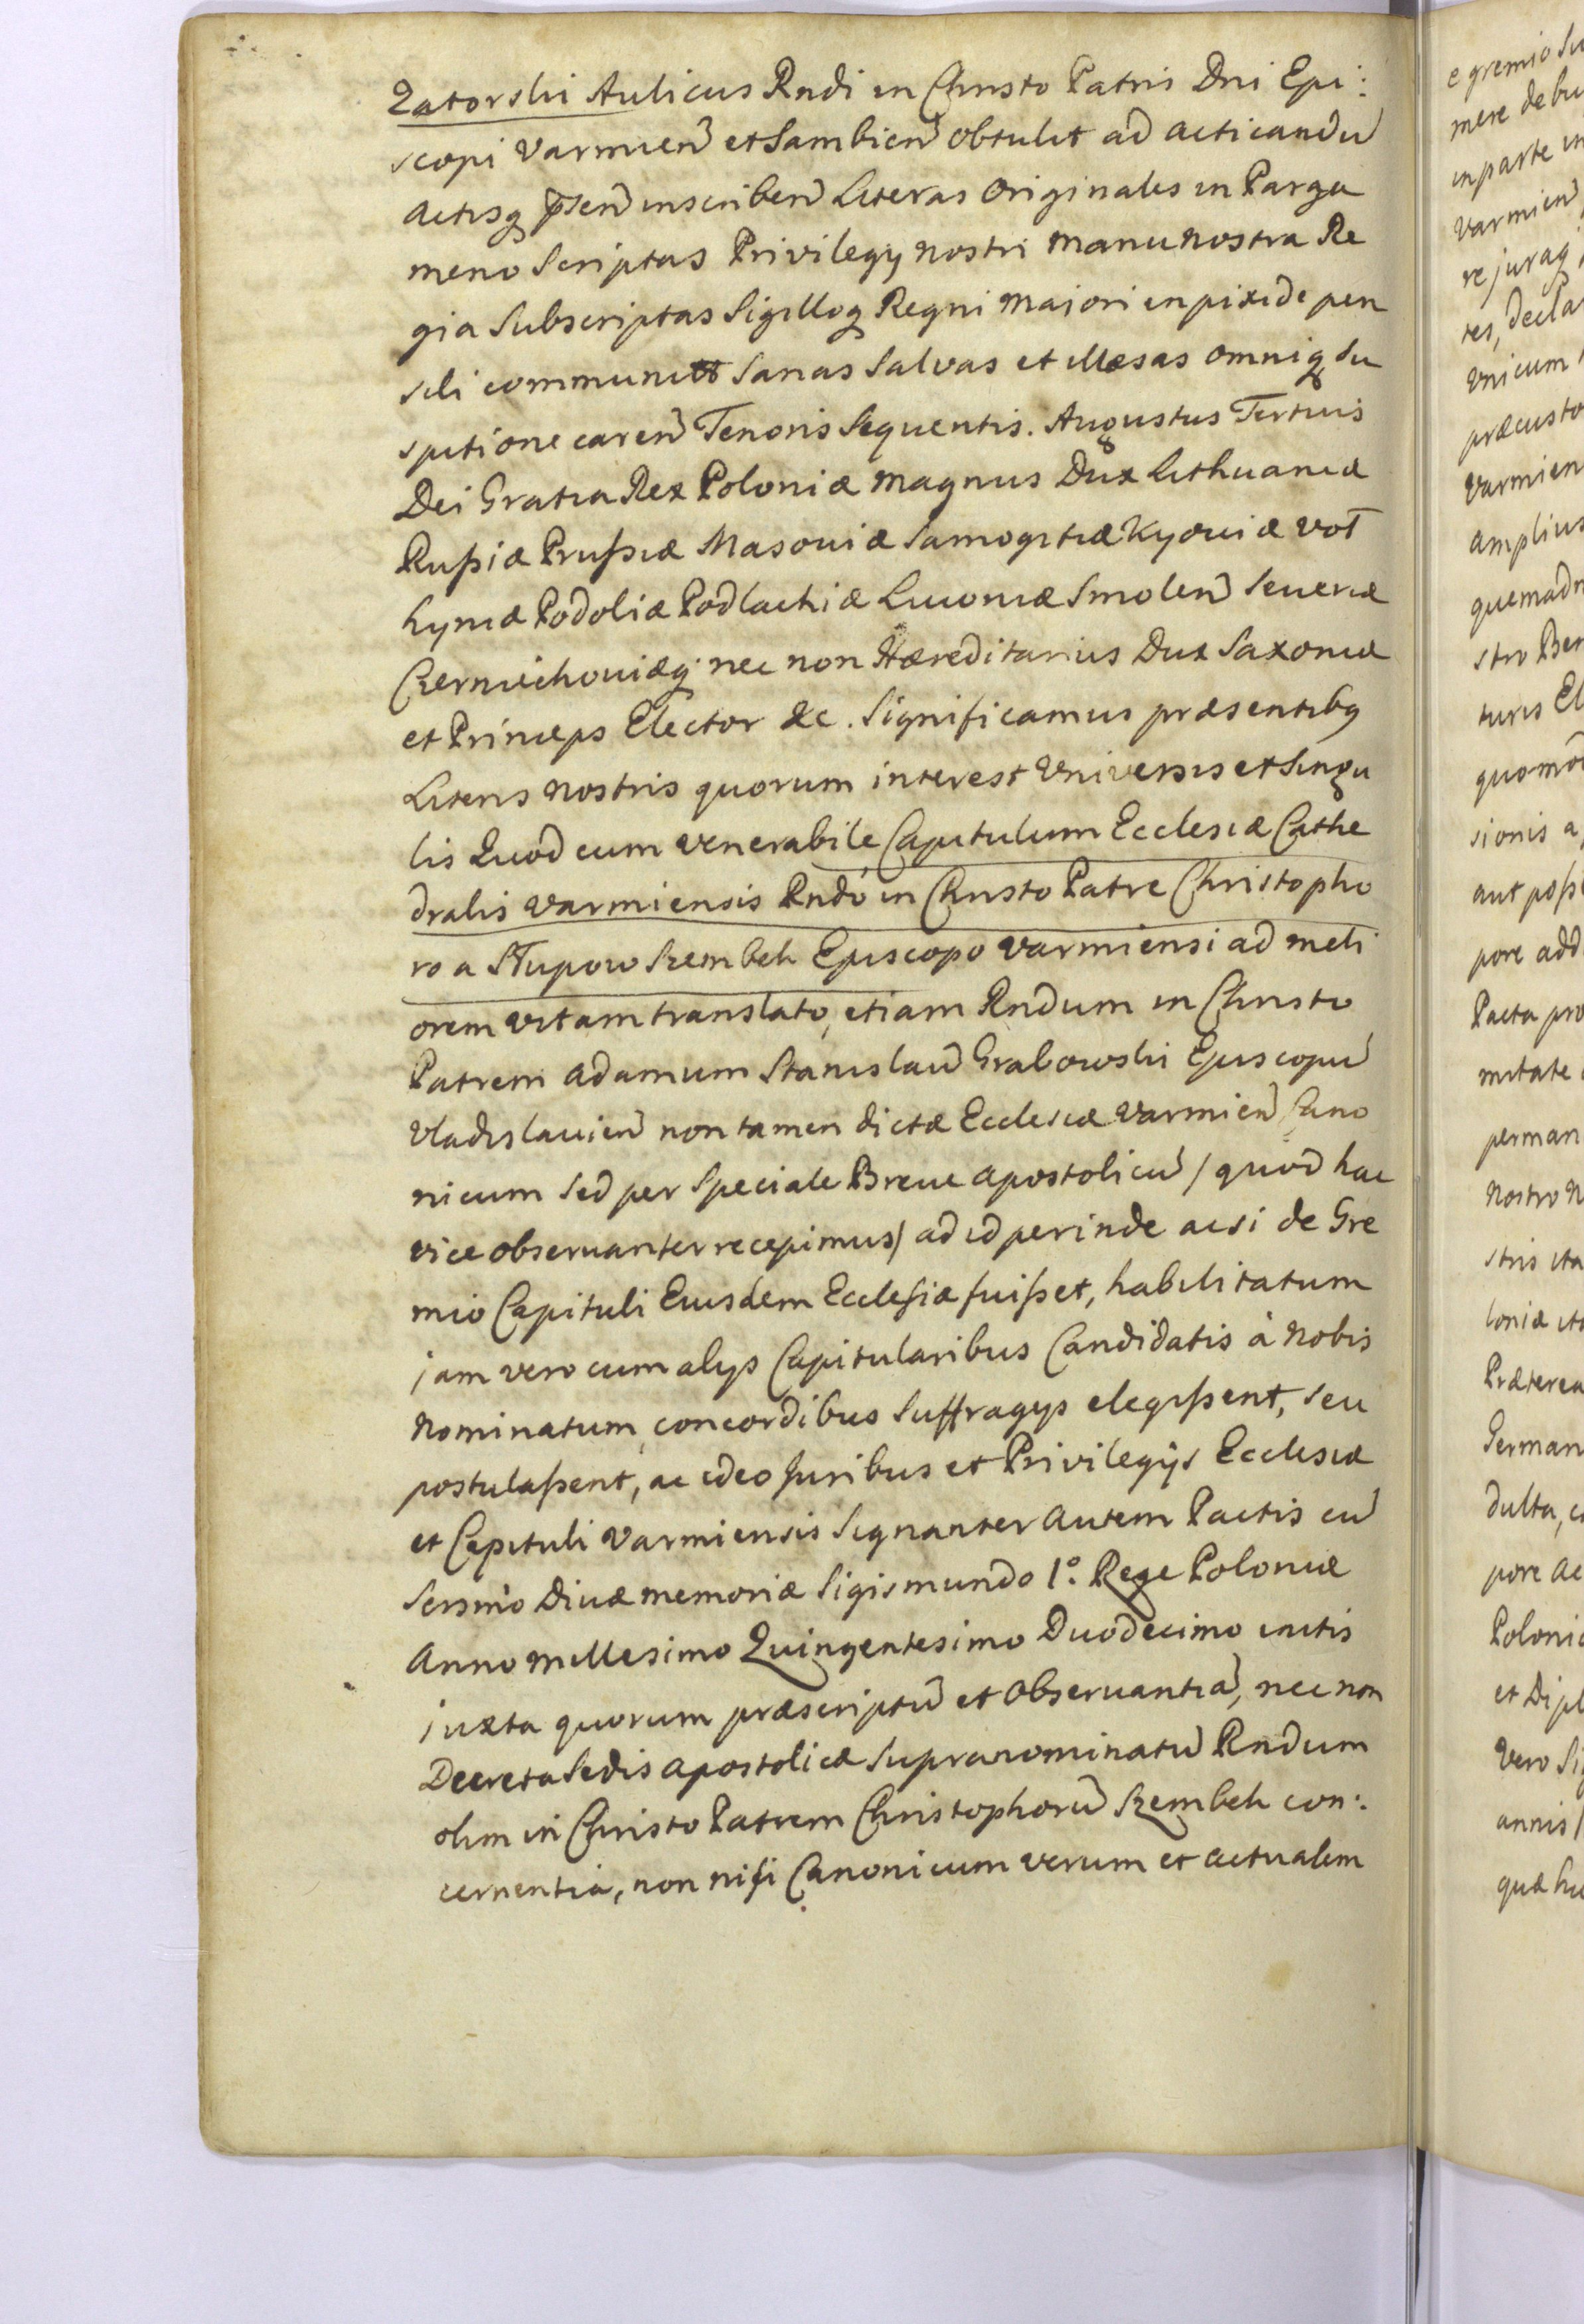 Zatorski Aulicus Rndi in Christo Patris Dni Epi:
scopi Varmien̄ et Sambien̄ obtulit ad acticandū
actisq p̄sen̄ inscriben̄ Literas Originales in Parga
meno Scriptas Privilegy nostri manu nostra Re
gia Subscriptas Sigilloq Regni majori in pixide pen
sili communitt Sanas Salvas et illæsas omniq su
spitione caren̄ Tenoris Sequentis. Augustus Tertius
Dei Gratia Rex Poloniæ Magnus Dux Lithuaniæ
Rußiæ Prußiæ Masoviæ Samogitiæ Kyouiæ Vol
hyniæ Podoliæ Podlachiæ Liuoniæ Smolen̄ Seueriæ
Czerniechouiæq nec non Hæreditarius Dux Saxoniæ
et Princeps Elector &c. Significamus præsentibq
Literis nostris quorum interest Vniversis et Singu
lis Quod cum venerabile Capitulum Ecclesiæ Cathe
dralis Varmiensis Rndo in Christo Patre Christopho
ro a Słupow Szembek Episcopo Varmiensi ad meli
orem vitam translato, etiam Rndum in Christo
Patrem Adamum Stanislaū Grabowski Episcopū
Vladislauien̄ non tamen dictæ Ecclesiæ Varmien̄ Cano
nicum sed per Speciale Breue Apostolicū / quod hac
vice obseruanter recepimus / ad id perinde acsi de Gre
mio Capituli Eiusdem Ecclesiæ fuißet, habilitatum
jam vero cum alys Capitularibus Candidatis à Nobis
Nominatum, concordibus Suffragys elegißent, seu
postulaßent, ac ideo Juribus et Privilegijs Ecclesiæ
et Capituli Varmiensis Signanter Autem Pactis cū
Sersmo Diuæ memoriæ Sigismundo 1o. Rege Poloniæ
Anno Millesimo Quingentesimo Duodecimo initis
juxta quorum præscriptū et Obseruantiā, nec non
Decreta Sedis Apostolicæ Supranominatū Rndum
olim in Christo Patrem Christophorū Szembek con:
cernentia, non nisi Canonicum verum et actualem
e gremio Su
mere debu
in parte in
Varmien
re juraq
tes, decla
Vnicum
præcusto
Varmien
amplius
quemadm
stro Ben
turis El
quomo
sionis a
aut poßi
pore add
Pacta pro
mitate
perman
Nostro N
stris ita
loniæ it
Præterea
German
dulta, c
pore ac
Poloni
et Dipl
Vero Sig
annis /
quæ hu